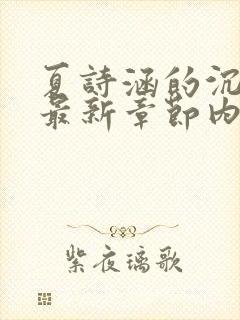 夏詩涵的沉
最新章節內
紫夜璃歌